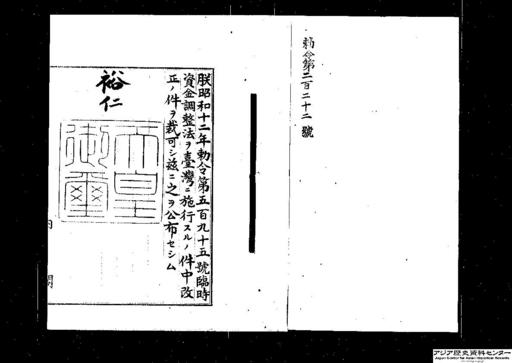 勅令第二百二十二號
朕昭和十二年勅令第五百九十五號臨時
資金調整法ヲ臺灣ニ施行スルノ件中改
正ノ件ヲ裁可シ茲ニ之ヲ公布セシム
裕仁
天皇
御璽
内閣
アジア歴史資料センター
Japan Center for Asian Historical Records